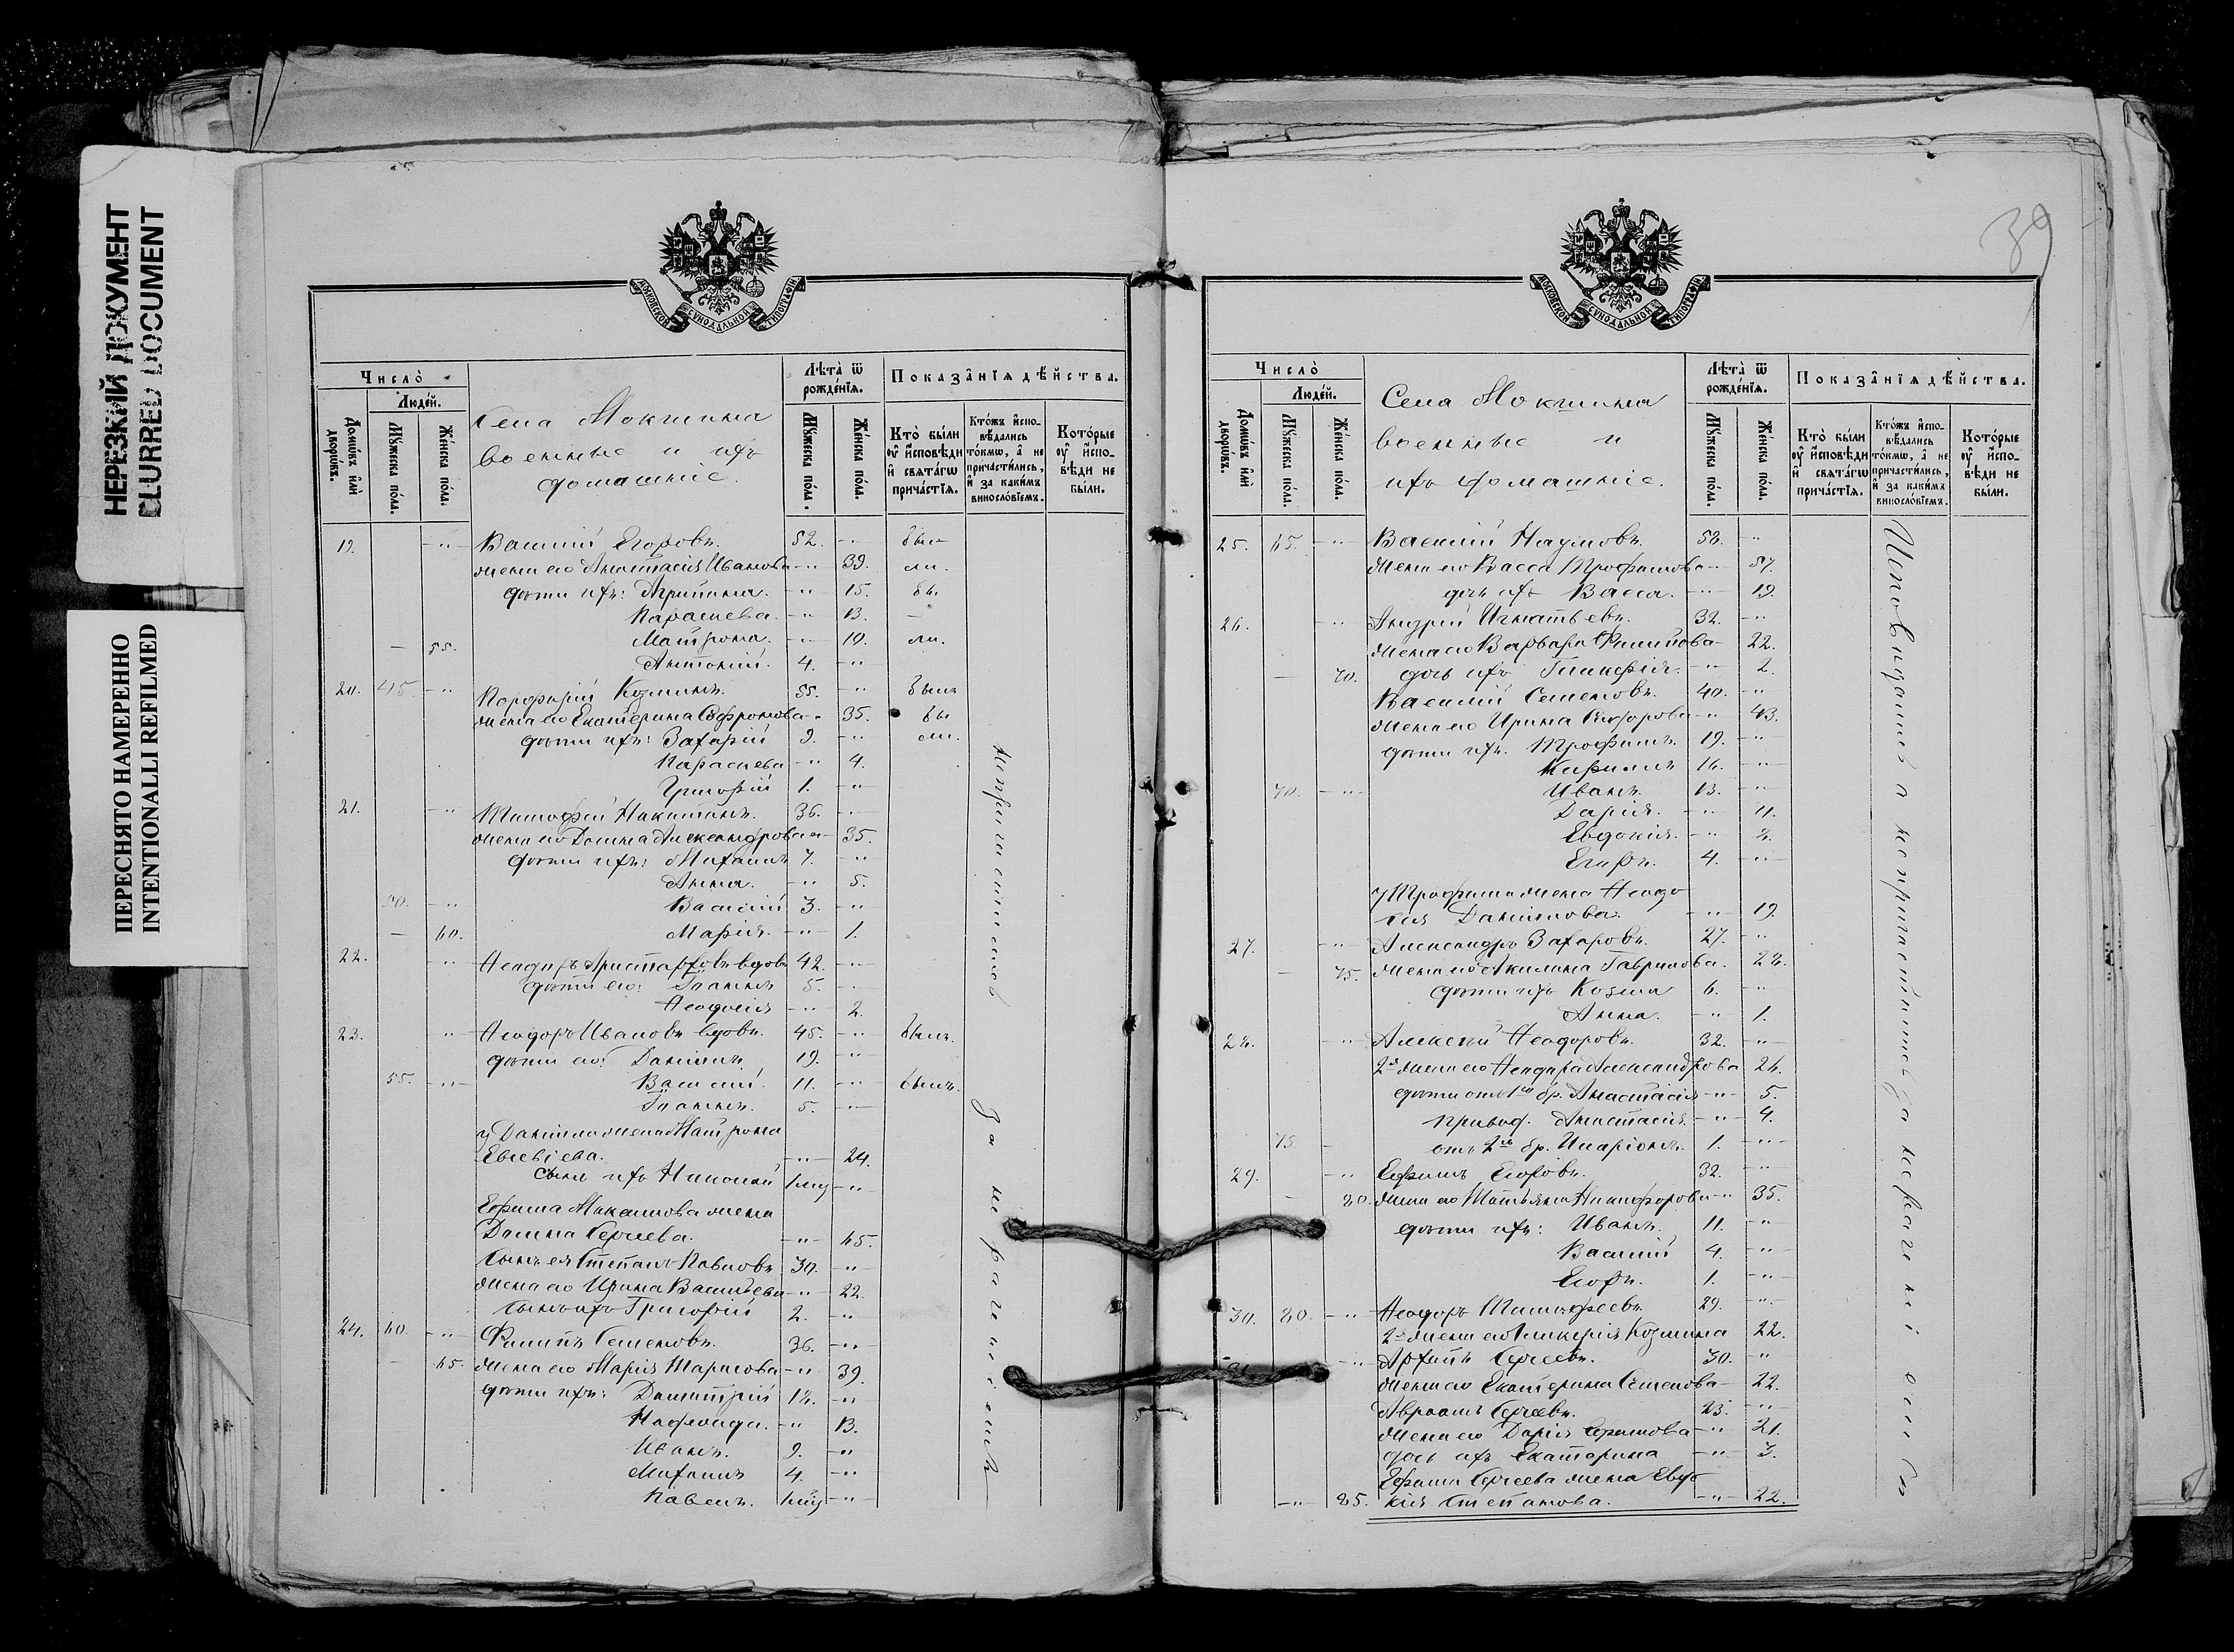 НЕРЕЗКИЙ ДОКУМЕНТ
BLURRED DOCUMENT
ПЕРЕСНЯТО НАМЕРЕННО
INTENTIONALLI REFILMED
МОСКОВСКОЙ СѴНОДАЛЬНОЙ ТИПОГРАФІИ
Число̀
Люде́й.
Домѡ́въ и҆лѝ дворѡ́въ.
Мꙋ́жеска по́ла.
Же́нска по́ла.
Села Мокшина
военные и ихъ
домашніе.
Лѣта̀ ѿ рожде́нїѧ.
Мꙋ́жеска по́ла.
Же́нска по́ла.
Показа̂нїѧ дѣ́йства.
Кто̀ бы́ли ᲂу҆ и҆сповѣ́ди и҆ свѧта́гѡ прича́стїѧ.
Кто́жъ и҆спо-вѣ́дались то́кмѡ, а҆ не причасти́лись, и҆ за каки́мъ винослѻ́вїемъ.
Кото́рые ᲂу҆ и҆спо-вѣ́ди не бы́ли.
19. -"- Василій Егоровъ. 52. -"- бы
жена его Анастасія Иванова -"- 39. ли.
дѣти ихъ: Агрипина. -"- 15. бы
Параскева. -"- 13. -
Матрона. -"- 10. ли.
- 55.
Антоній. 4. -"-
20. 45. -"- Порфирій Козминъ. 55. -"- былъ
жена его Екатерина Софронова -"- 35. бы
дѣти ихъ: Захарій 9. -"- ли.
Параскева -"- 4.
Григорій 1. -"-
21. -"- Тимофей Никитинъ. 36. -"-
жена его Домна Александрова -"- 35.
дѣти ихъ: Михаилъ 7. -"-
Анна. -"- 5.
50. -"- Василій 3. -"-
- 60. Марія. -"- 1.
22. -"- Ѳеодоръ Аристарховъ вдовъ 42. -"-
дѣти его: Іоаннъ 5. -"-
Ѳеодосія -"- 2.
23. -"- Ѳеодоръ Ивановъ вдовъ. 45. -"- былъ.
дѣти его: Даніилъ 19. -"-
55. -"- Василій. 11. -"- былъ.
Іоаннъ. 5. -"-
у Даніила жена Матрона
Евсевіева. -"- 24.
сынъ ихъ Николай -"-
Ефима Максимова жена
Домна Сергіева. -"- 65.
сынъ ея Стефанъ Павловъ 30. -"-
жена его Ирина Васильева -"- 22.
сынъ ихъ Григорій 2. -"-
24. 60. -"- Филипъ Семеновъ. 36. -"-
- 65. жена его Марія Тарасова -"- 39.
дѣти ихъ: Димитрій 18. -"-
-"- 13.
Иванъ. 9. -"-
Михаилъ 4. -"-
Павелъ. -"-
непричастились
за нераченіемъ
39
МОСКОВСКОЙ СѴНОДАЛЬНОЙ ТИПОГРАФІИ
Число̀
Люде́й.
Домѡ́въ и҆лѝ дворѡ́въ.
Мꙋ́жеска по́ла.
Же́нска по́ла.
Села Мокшина
военные и
ихъ домашніе.
Лѣта̀ ѿ рожде́нїѧ.
Мꙋ́жеска по́ла.
Же́нска по́ла.
Показа̂нїѧ дѣ́йства.
Кто̀ бы́ли ᲂу҆ и҆сповѣ́ди и҆ свѧта́гѡ прича́стїѧ.
Кто́жъ и҆спо-вѣ́дались то́кмѡ, а҆ не причасти́лись, и҆ за каки́мъ винослѻ́вїемъ.
Кото́рые ᲂу҆ и҆спо-вѣ́ди не бы́ли.
25. 65. -"- Василій Наумовъ. 58. -"-
жена его Васса Трофимова -"- 57.
дочь ихъ Васса. -"- 19.
26. -"- Андрей Игнатьевъ. 32. -"-
жена его Варвара Филипова 22.
- 70. дочь ихъ Гликерія. -"- 2.
Василій Семеновъ. 40. -"-
жена его Ирина -"- 43.
дѣти ихъ. Трофимъ. 19. -"-
Кирилъ 16. -"-
70. -"- Иванъ. 13. -"-
Дарія. -"- 11.
Евдокія. -"- 8.
Егоръ. 4. -"-
у Трофима жена Ѳеодо
сія Данилова. -"- 19.
27. -"- Александръ Захаровъ. 27. -"-
- 75. жена его Акилина Гаврилова. 28.
дѣти ихъ Козма 6. -"-
Анна. -"- 1.
28. -"- Алексѣй Ѳеодоровъ. 32. -"-
2я жена его Александрова 26.
дѣти отъ 1го бр. Анастасія -"- 5.
Анастасія. -"- 4.
75. - отъ 2го бр. Иларіонъ. 1. -"-
29. -"- Ефимъ Егоровъ. 32. -"-
- 80. жена его Татьяна Никифорова -"- 35.
дѣти ихъ: Иванъ. 11. -"-
Василій 4. -"-
Егоръ. 1. -"-
30. 80. -"- Ѳеодоръ Тимофеевъ. 29. -"-
2я жена его Гликерія Козмина 22.
31. -"- Архипъ Сергеевъ. 30. -"-
жена его Екатерина Семенова - 22.
Авраамъ Сергеевъ. 23. -"-
жена его Дарія Ефимова -"- 21.
дочь ихъ Екатерина -"- 3.
Ефима Сергеева жена Евдо
-"- 85. кія Степанова. -"- 22.
Исповѣдались а непричастились за нераченіемъ